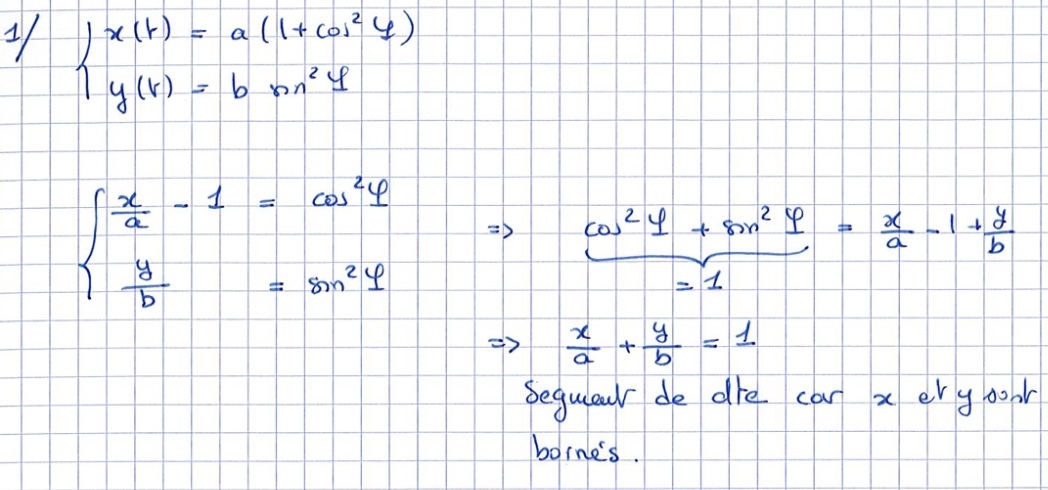 1/ { x(t) = a (1 + cos² φ)
y(t) = b sin² φ
{ x/a - 1 = cos² φ
y/b = sin² φ
=> cos² φ + sin² φ = x/a - 1 + y/b
= 1
=> x/a + y/b = 1
Segment de dte car x et y sont
bornés.